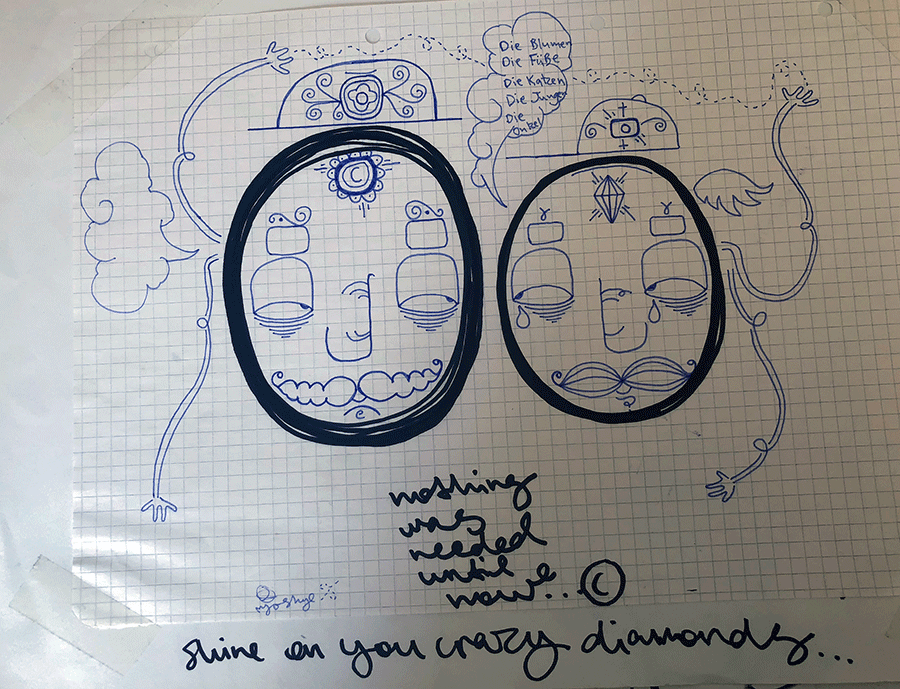 Die Blumen
Die Füße
Die Katzen
Die Jungen
Die
Onkel
C
nothing
was
needed
until
now... ©
shine on you crazy diamonds...